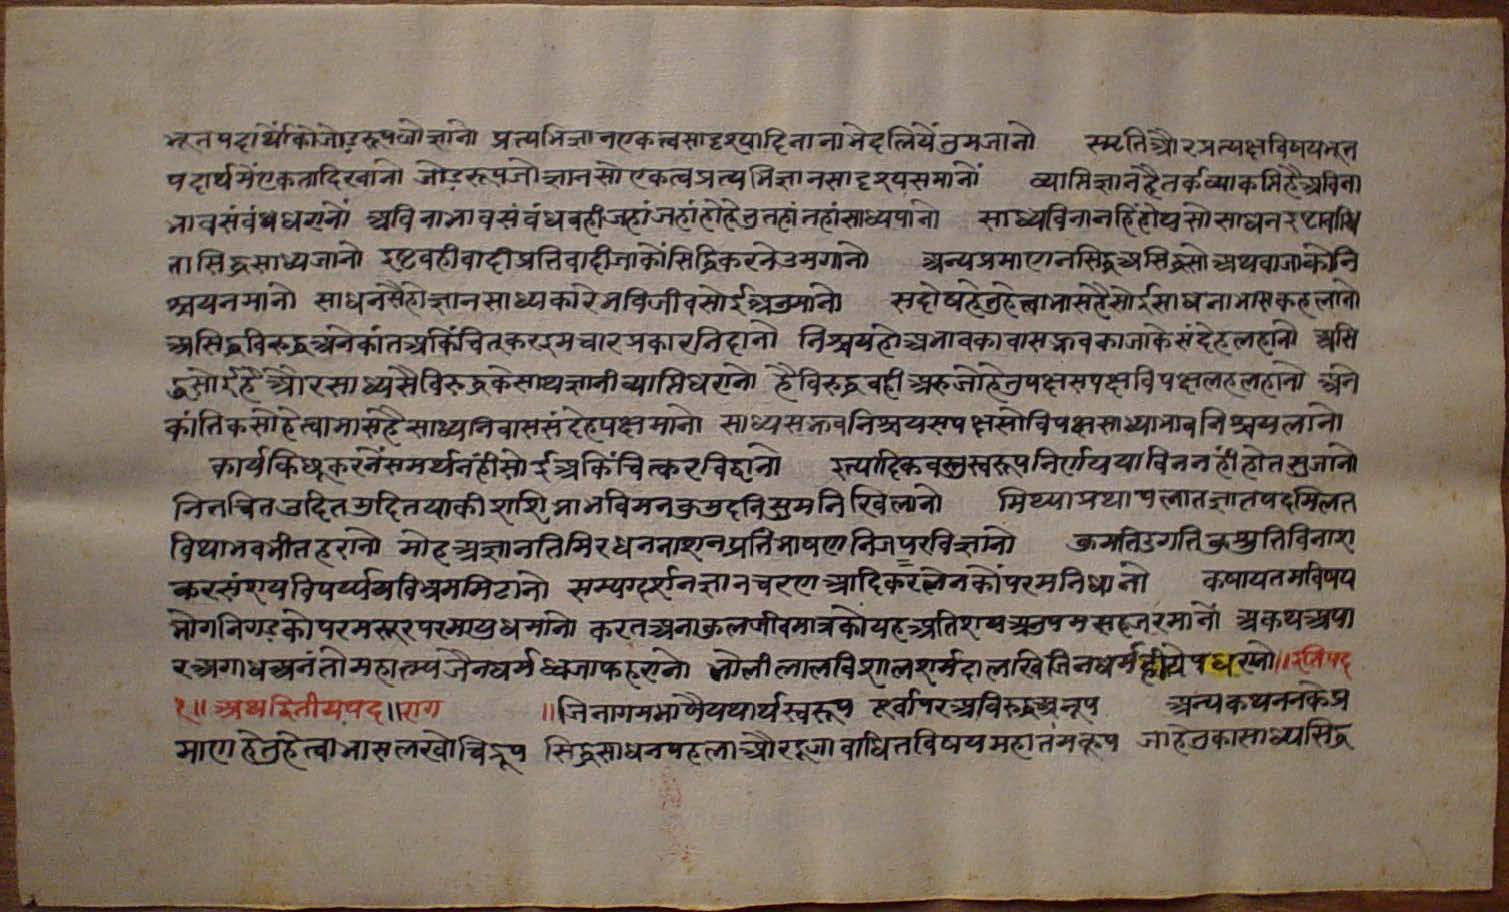 भूतपदार्थोंकोजोडरूपजोज्ञानो प्रत्यभिज्ञानएकत्वसादृश्यादिनानाभेदलियेंतुमजानो स्मृतिऔरप्रत्यक्षविषयभूत
पदार्थमेंएकतादिखानो जोडरूपजोज्ञानसोएकत्वप्रत्यभिज्ञानसादृश्यसमानों व्याप्तिज्ञानहैतर्कव्याकप्तिहैअविना
भावसंबंधधरानों अविनाभावसंबंधवहीजहांजहांहोहेतुतहांतहांसाध्यपानो साध्यविनानहिंहोयसोसाधन
तासिद्धसाध्यजानो इष्टवहीवादीप्रतिवादीजाकोंसिद्धिकरनेउमगानो अन्यप्रमाणनसिद्धअसिद्धसोअथवाजाकोनि
श्चयनमानो साधनसैंहोज्ञानसाध्यकारेभविजीवसोईअनुमानो सदोषहेतुहेत्वाभासहैसोईसाधनाभासकहलानो
असिद्धविरुद्धअनेकांतअकिंचितकरइमचारप्रकारनिदानो निश्चयहोअभावकावासद्भावकाजाकेसंदेहलहानो असि
द्धसोईहैऔरसाध्यसैविरुद्धकेसाथज्ञानीव्याप्तिधरानो हैविरुद्धवहीअरुजोहेतुपक्षसपक्षविपक्षलहलहानो अने
कांतिकसोहेत्वाभासहैसाध्यनिवाससंदेहपक्षमानो साध्यसद्भावनिश्चयसपक्षसोविपक्षसाध्याभावनिश्चयलानो
कार्यकिछूकरनेंसमर्थनंहीसोईअकिंचित्करविद्वानो इत्यादिकवस्तुस्वरूपनिर्णययाविननंहीहोतसुजानो
नितचितउदितमुदितयाकीशशिआभविमनकुमुदनिसुमनिखिलानो मिथ्याप्रथापलातज्ञातपदमिलत
विथाभवभीतहरानो मोहअज्ञानतिमिरधननाशनप्रतिभाषणनिजपरविज्ञानो कुमतिकुगतिकुश्रुतिविनाश
करसंशयविपर्य्ययविभ्रममिटानो सम्यग्दर्शनज्ञानचरणआदिकरत्नेनकोंपरमनिधानो कषायतमविषय
भोगनिगडकोपरमसूरपरमायुधमानो करतअनाकुलजीवमात्रकोयहअतिशयअनुपमसहजरमानों अकथअपा
रअगाधअनंतोमहात्म्यजैनधर्मध्वजाफहरानो भोलीलालविशालशर्मदालखिजिनधर्महीयेपधरानो॥इतिपद
१॥अथद्वितीयपद॥राग ॥जिनागमभाषैयथार्थस्वरूप पूर्वापरअविरुद्धअनूप अन्यकथननकेप्र
माणहेतुहेत्वाभासलखोचिद्रूप सिद्धसाधनपहलाऔरदूजावाधितविषयमहातमकूप जाहेतुकासाध्यसिद्ध